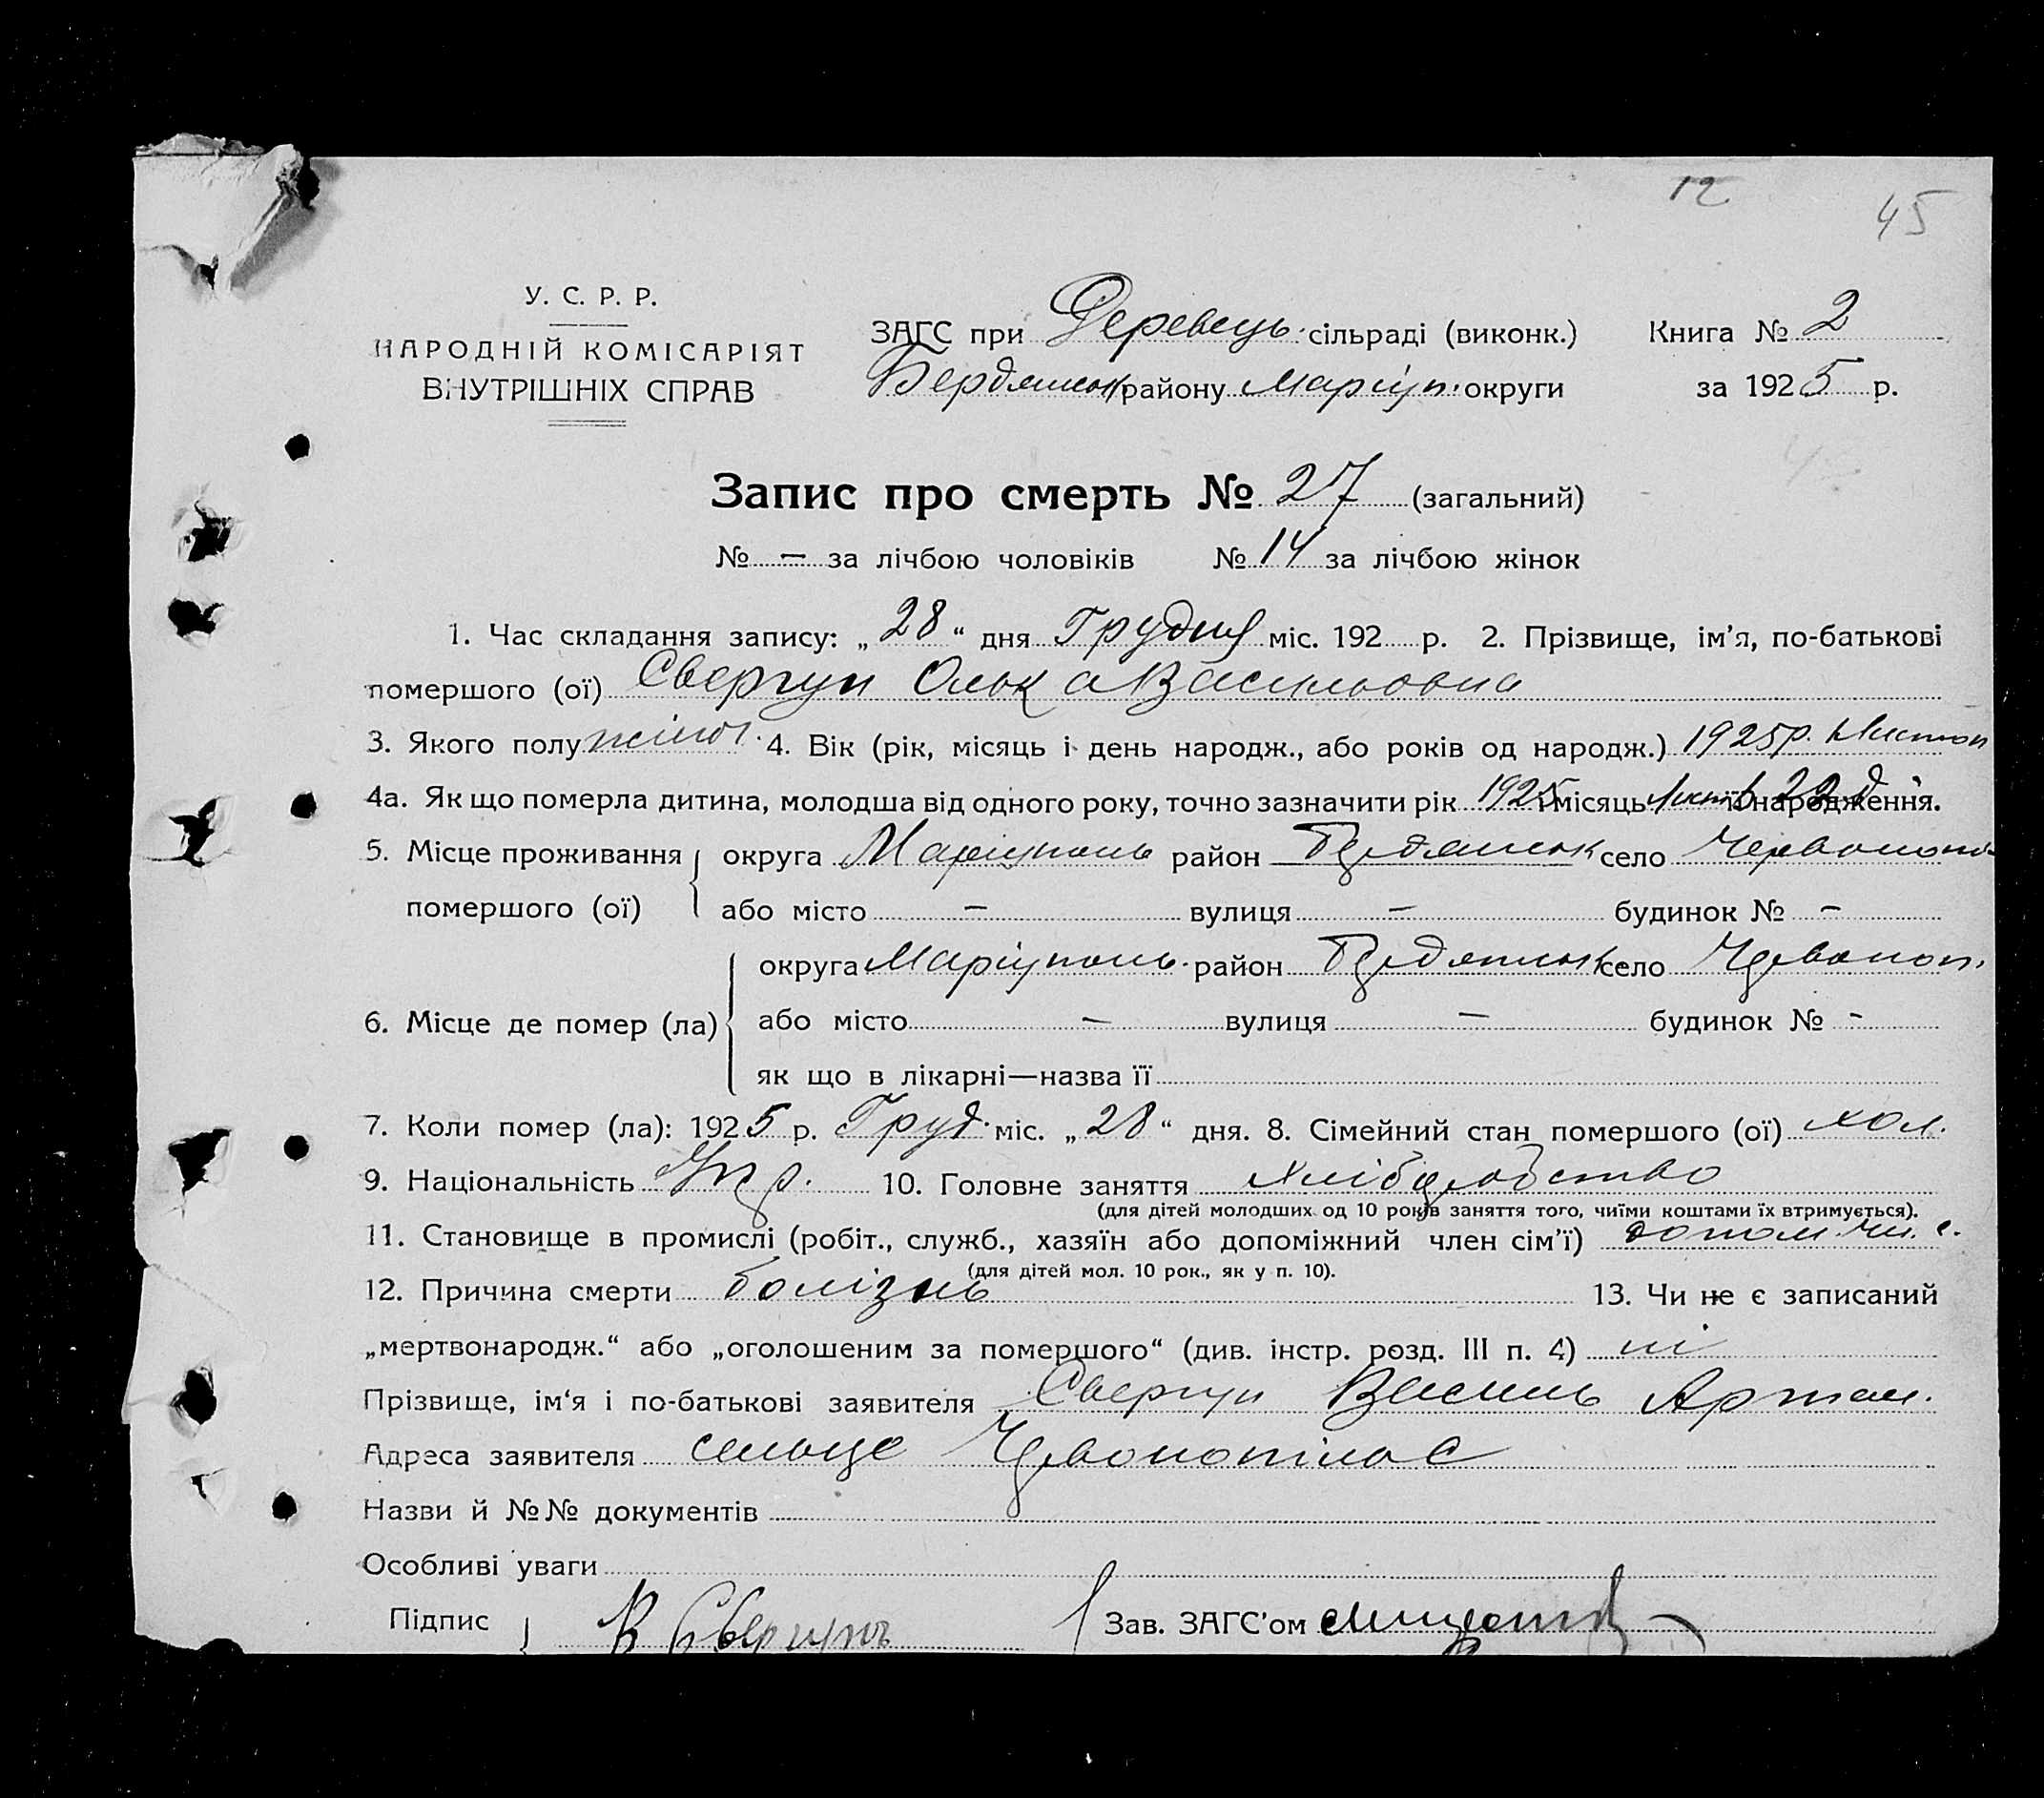 12
45
У. С. Р. Р.
НАРОДНІЙ КОМІСАРІЯТ
ВНУТРІШНІХ СПРАВ
ЗАГС при Деревець. сільраді (виконк.) Книга № 2
Бердянськ району Маріуп. округи за 1925 р.
Запис про смерть № 27 (загальний)
№ — за лічбою чоловіків № 14 за лічбою жінок
1. Час складання запису: „28“ дня Грудня міс. 192 р. 2. Прізвище, ім'я, по-батькові
помершого (ої) Свергун Васильовна
3. Якого полу жіноч. 4. Вік (рік, місяць і день народж., або років од народж.) 1925р. Листоп
4а. Як що померла дитина, молодша від одного року, точно зазначити рік 1925 місяць Лист 22 д народження.
5. Місце проживання округа Маріуполь район Бердянськ село Червонопі
помершого (ої) або місто — вулиця — будинок № —
округа Маріуполь. район Бердянськ село Червоноп.
6. Місце де помер (ла) або місто — вулиця — будинок № -
як що в лікарні—назва її
7. Коли помер (ла): 1925 р. Груд. міс. „28“ дня. 8. Сімейний стан помершого (ої) хол.
9. Національність Укр. 10. Головне заняття хліборобство
(для дітей молодших од 10 років заняття того, чиїми коштами їх втримується).
11. Становище в промислі (робіт., служб., хазяїн або допоміжний член сім'ї) допом чл. с.
(для дітей мол. 10 рок., як у п. 10).
12. Причина смерти болізнь 13. Чи не є записаний
„мертвонародж.“ або „оголошеним за помершого“ (див. інстр. розд. III п. 4) ні
Прізвище, ім'я і по-батькові заявителя Свергун Василь Артам.
Адреса заявителя сельце Червонопілае
Назви й №№ документів
Особливі уваги
Підпис В Свергунъ Зав. ЗАГС'ом